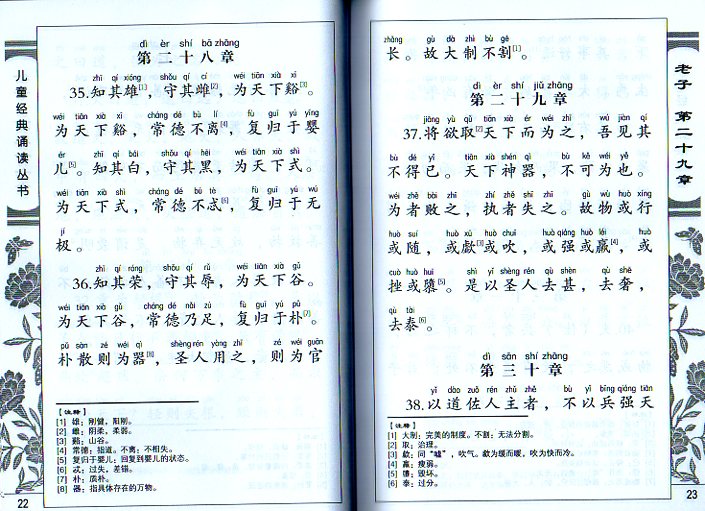 儿童经典诵读丛书
dì èr shí bā zhāng
第二十八章
zhī qí xióng shǒu qí cí wéi tiān xià xī
35.知其雄[1]，守其雌[2]，为天下谿[3]。
wéi tiān xià xī cháng dé bù lí fù guī yú yīng
为天下谿，常德不离[4]，复归于婴
ér zhī qí bái shǒu qí hēi wéi tiān xià shì
儿[5]。知其白，守其黑，为天下式。
wéi tiān xià shì cháng dé bú tè fù guī yú wú
为天下式，常德不忒[6]，复归于无
jí
极。
zhī qí róng shǒu qí rǔ wéi tiān xià gǔ
36.知其荣，守其辱，为天下谷。
wéi tiān xià gǔ cháng dé nǎi zú fù guī yú pǔ
为天下谷，常德乃足，复归于朴[7]。
pǔ sàn zé wéi qì shèng rén yòng zhī zé wéi guān
朴散则为器[8]，圣人用之，则为官
【注释】
[1] 雄：刚健，阳刚。
[2] 雌：阴柔，柔弱。
[3] 谿：山谷。
[4] 常德：指道。不离：不相失。
[5] 复归于婴儿：回复到婴儿的状态。
[6] 忒：过失，差错。
[7] 朴：质朴。
[8] 器：指具体存在的万物。
22
zhǎng gù dà zhì bù gē
长。故大制不割[1]。
dì èr shí jiǔ zhāng
第二十九章
jiāng yù qǔ tiān xià ér wéi zhī wú jiàn qí
37.将欲取[2]天下而为之，吾见其
bù dé yǐ tiān xià shén qì bù kě wéi yě
不得已。天下神器，不可为也。
wéi zhě bài zhī zhí zhě shī zhī gù wù huò xíng
为者败之，执者失之。故物或行
huò suí huò xū huò chuī huò qiáng huò léi huò
或随，或歔[3]或吹，或强或羸[4]，或
cuò huò huī shì yǐ shèng rén qù shèn qù shē
挫或隳[5]。是以圣人去甚，去奢，
qù tài
去泰[6]。
dì sān shí zhāng
第三十章
yǐ dào zuǒ rén zhǔ zhě bù yǐ bīng qiáng tiān
38.以道佐人主者，不以兵强天
【注释】
[1] 大制：完美的制度。不割：无法分割。
[2] 取：治理。
[3] 歔：同“嘘”，吹气。歔为缓而暖，吹为快而冷。
[4] 羸：瘦弱。
[5] 隳：毁坏。
[6] 泰：过分。
老子 第二十九章
23